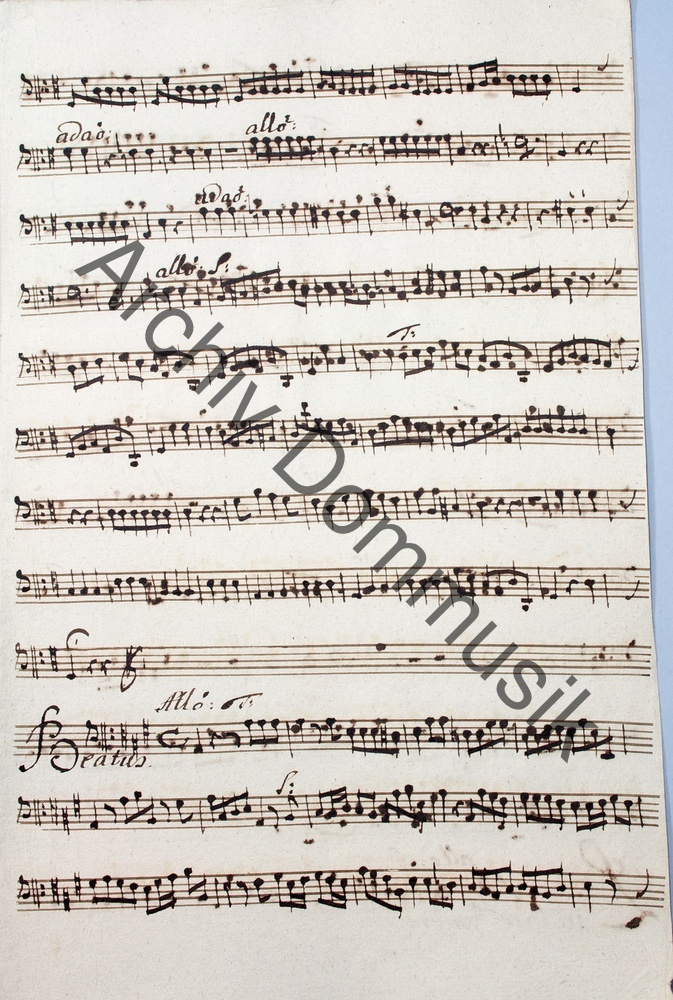 adaō:
allō:
adaō:
allō. S:
T:
Allō: T:
Beatus
S:
Archiv Dommusik